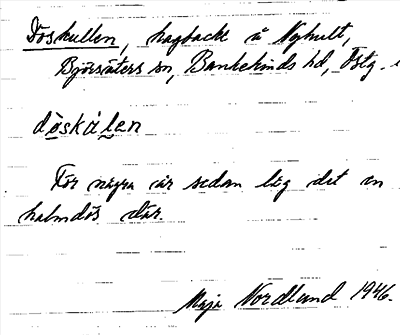 Döskullen, hagbacke å Nyhult,
Björsäters sn, Bankekinds hd, Östg.
döskálen
För några år sedan låg det en
halmdös där.
Maja Nordlund 1946.